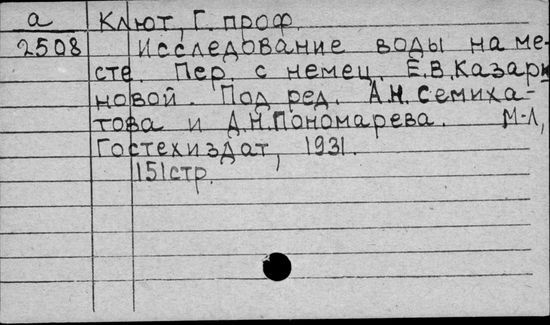 а Клют, Г. проф.
2508 Исследование воды на ме-
сте. Пер. с немец. Е.В.Казари
новой. Под ред. А.Н. Семиха-
това и Д.Н.Пономарева. М-Л,
Гостехиздат, 1931.
151стр.